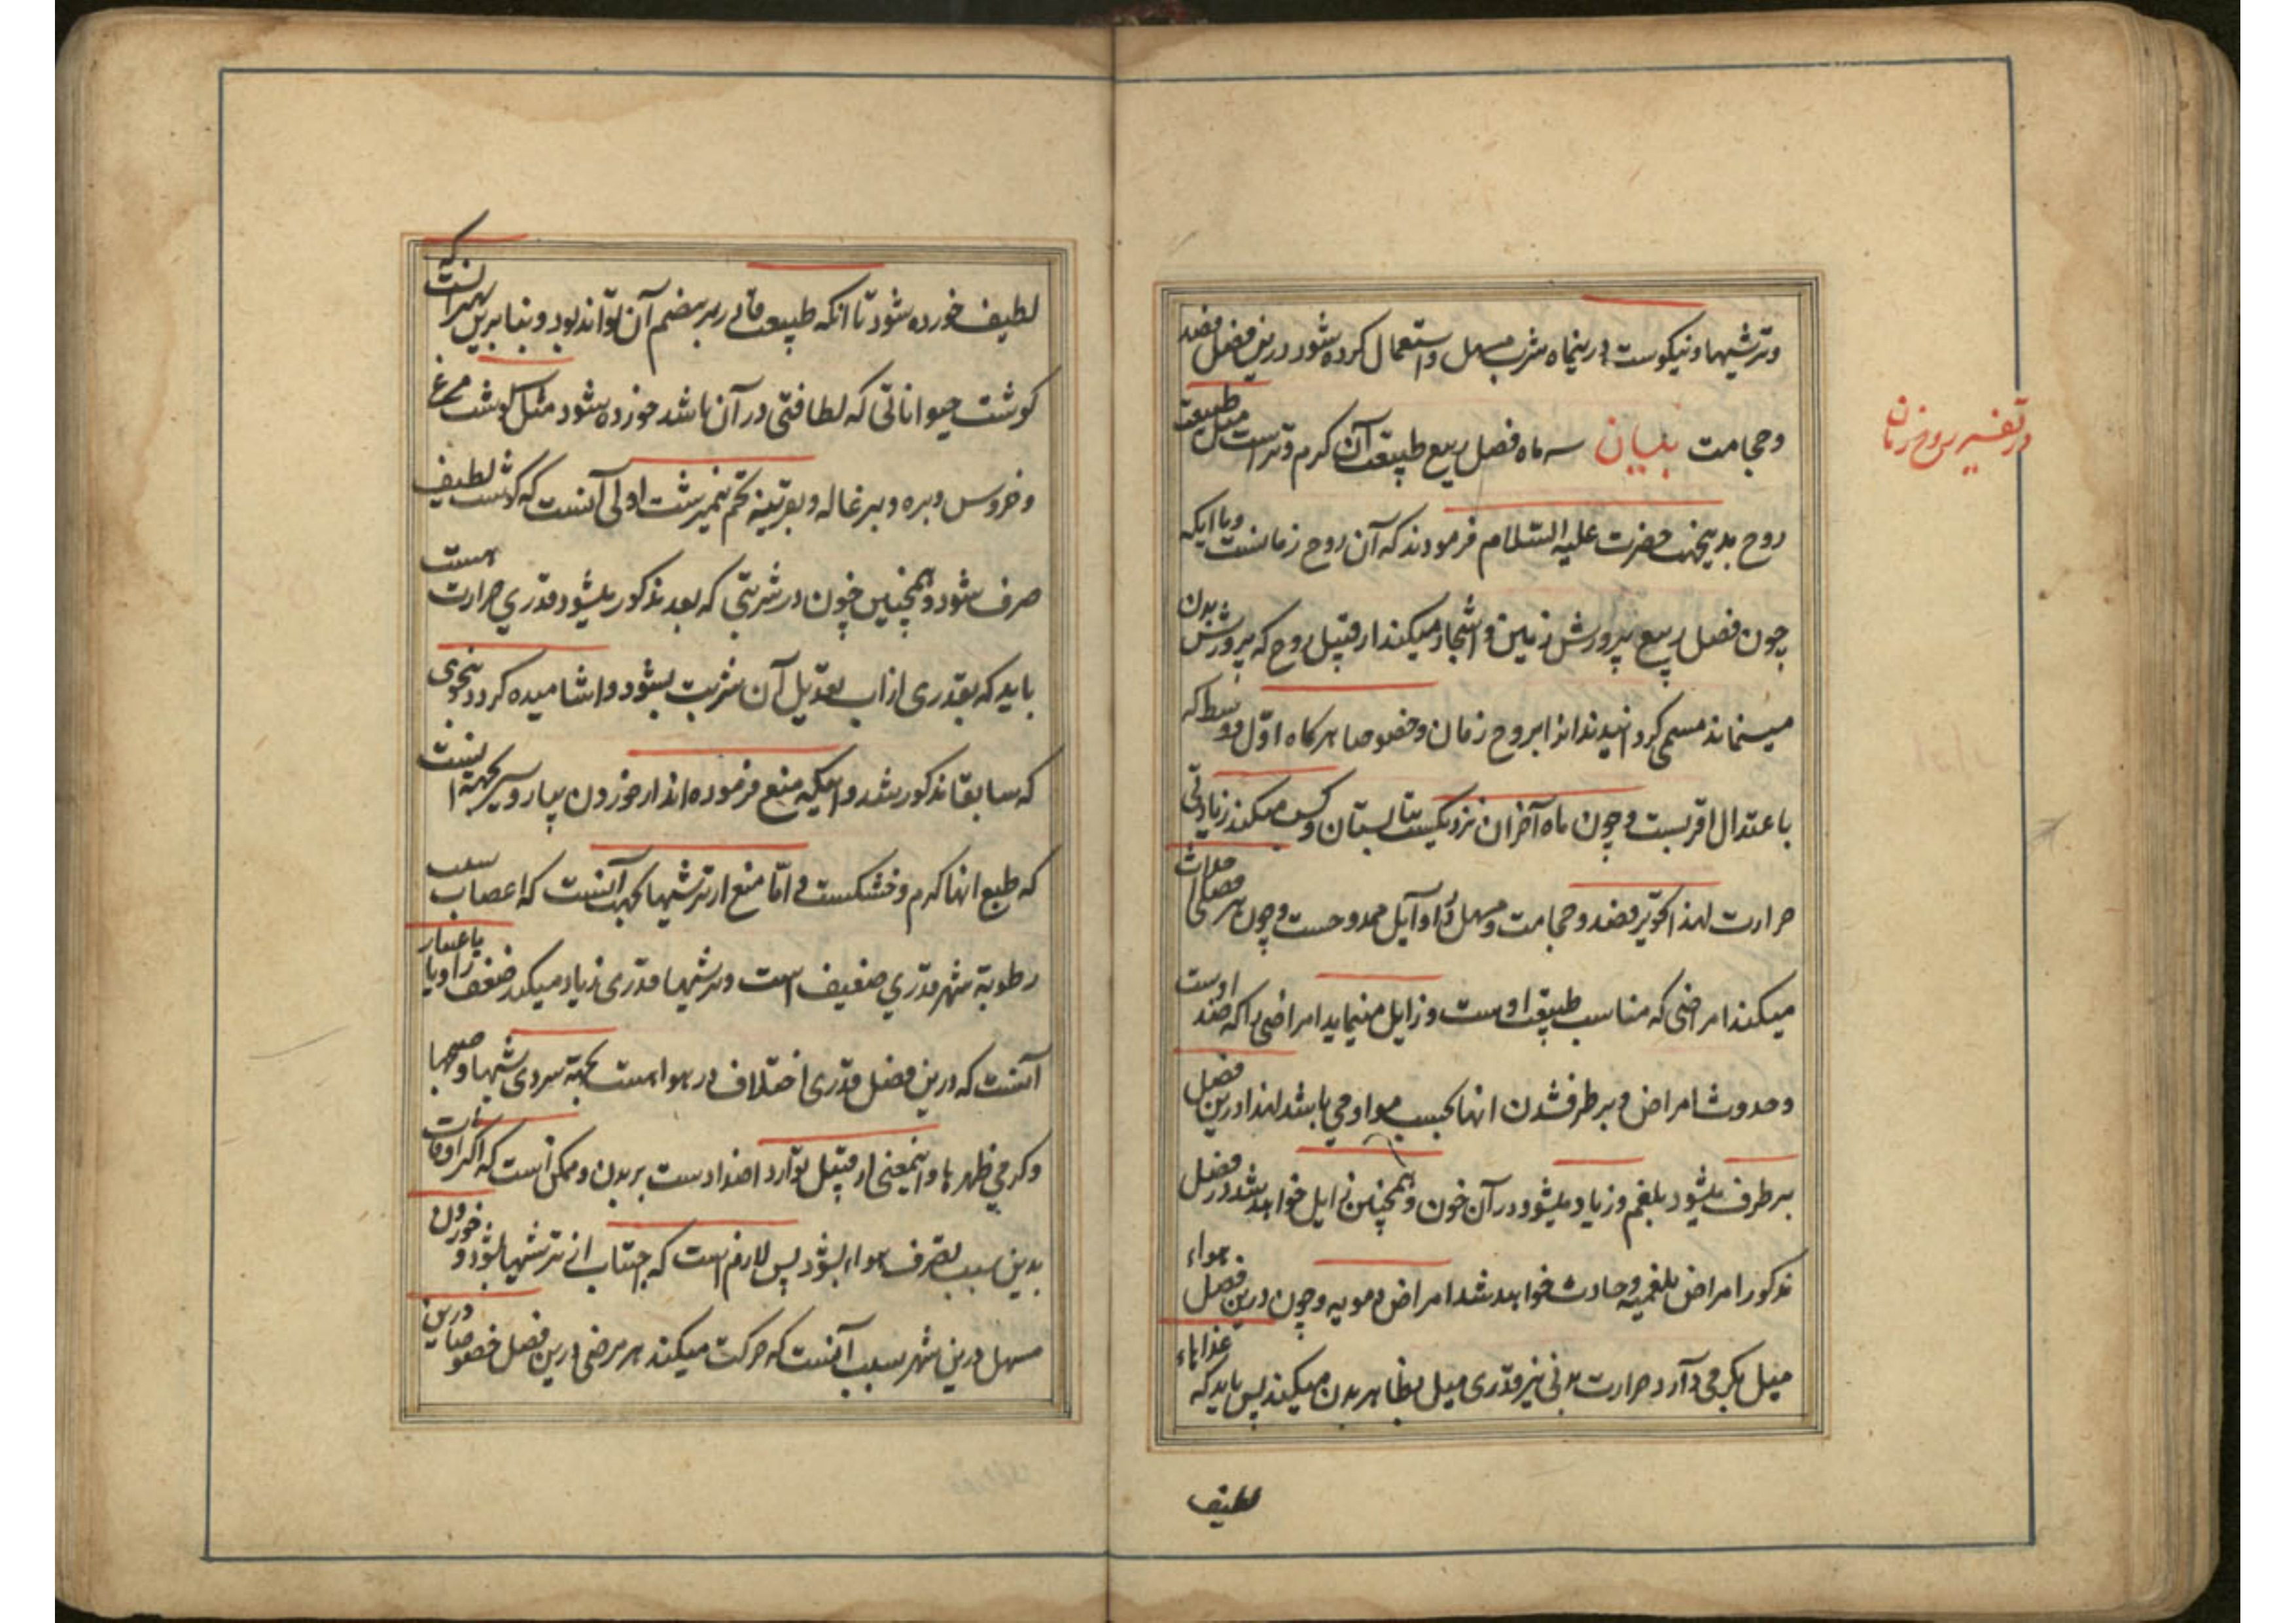 وترشیها و نیکوست درینماه شرب مسهل و استعمال کرده شود درین فصل فصد
وحجامت بنیان سه ماه فصل ربیع طبیعت آن کرم وتر است مثل طبیعت
روح بدینجهت حضرت علیه السلام فرمودند که آن روح زمانست ویا اینکه
چون فصل ربیع پرورش زمین و اشجار میکند از قبیل روح که پرورش بدن
مینماند مسمی کردانیدند انرا بروح زمان وخصوصا هر کاه اول و وسط که
باعتدال اقربست وچون ماه آخر ان نزدیکست بتابستان وکسب میکند زیادتی
حرارت لهذا تجویز فصد وحجامت ومسهل در اوایل ممدوحست وچون هر فصلی احداث
میکند امراضی که مناسب طبیعت اوست وزایل مینماید امراضی را که ضد اوست
وحدوث امراض وبرطرف شدن انها بحسب مواد می باشد لهذا درین فصل
برطرف میشود بلغم وزیاد میشود در آن خون وهمچنین زایل خواهد شد در فصل
مذکور امراض بلغمیه وحادث خواهد شد امراض دمویه وچون درین فصل هواء
میل بکرمی دارد حرارت بدنی نیز قدری میل بظاهر بدن میکند پس باید که غذاهاء
لطیف
در تفسیر روح زمان
لطیف خورده شود تا انکه طبیعت قادر بر هضم آن تواند بود وبنابرین بهتر انست که
کوشت حیواناتی که لطافتی در آن باشد خورده شود مثل کوشت مرغ
وخروس وبره وبرغاله وبقرینه تخم نیمبرشت اولی آنست که کوشت لطیف
صرف شود وهمچنین چون در شربتی که بعد مذکور میشود قدری حرارت هست
باید که بقدری از اب تعدیل آن شربت بشود واشامیده کردد بنحوی
که سابقا مذکور شد و اینکه منع فرموده اند از خوردن پیاز وسیر بجهة انست
که طبع انها کرم وخشکست و اما منع از ترشیها بجهت آنست که اعصاب بسبب
رطوبة شهر قدری ضعیف است وترشیها قدری زیاد میکند ضعف را ویا باعتبار
آنست که درین فصل قدری اختلاف در هوا هست بجهة سردی شبها وصبحها
وکرمی ظهرها واینمعنی از قبیل توارد اضداد است بر بدن وممکن است که اکثر اوقات
بدین سبب تصرف هوا بشود پس لازم است که اجتناب از ترشیها بشود و خوردن
مسهل درین شهر بسبب آنست که حرکت میکند هر مرضی درین فصل خصوصا درین